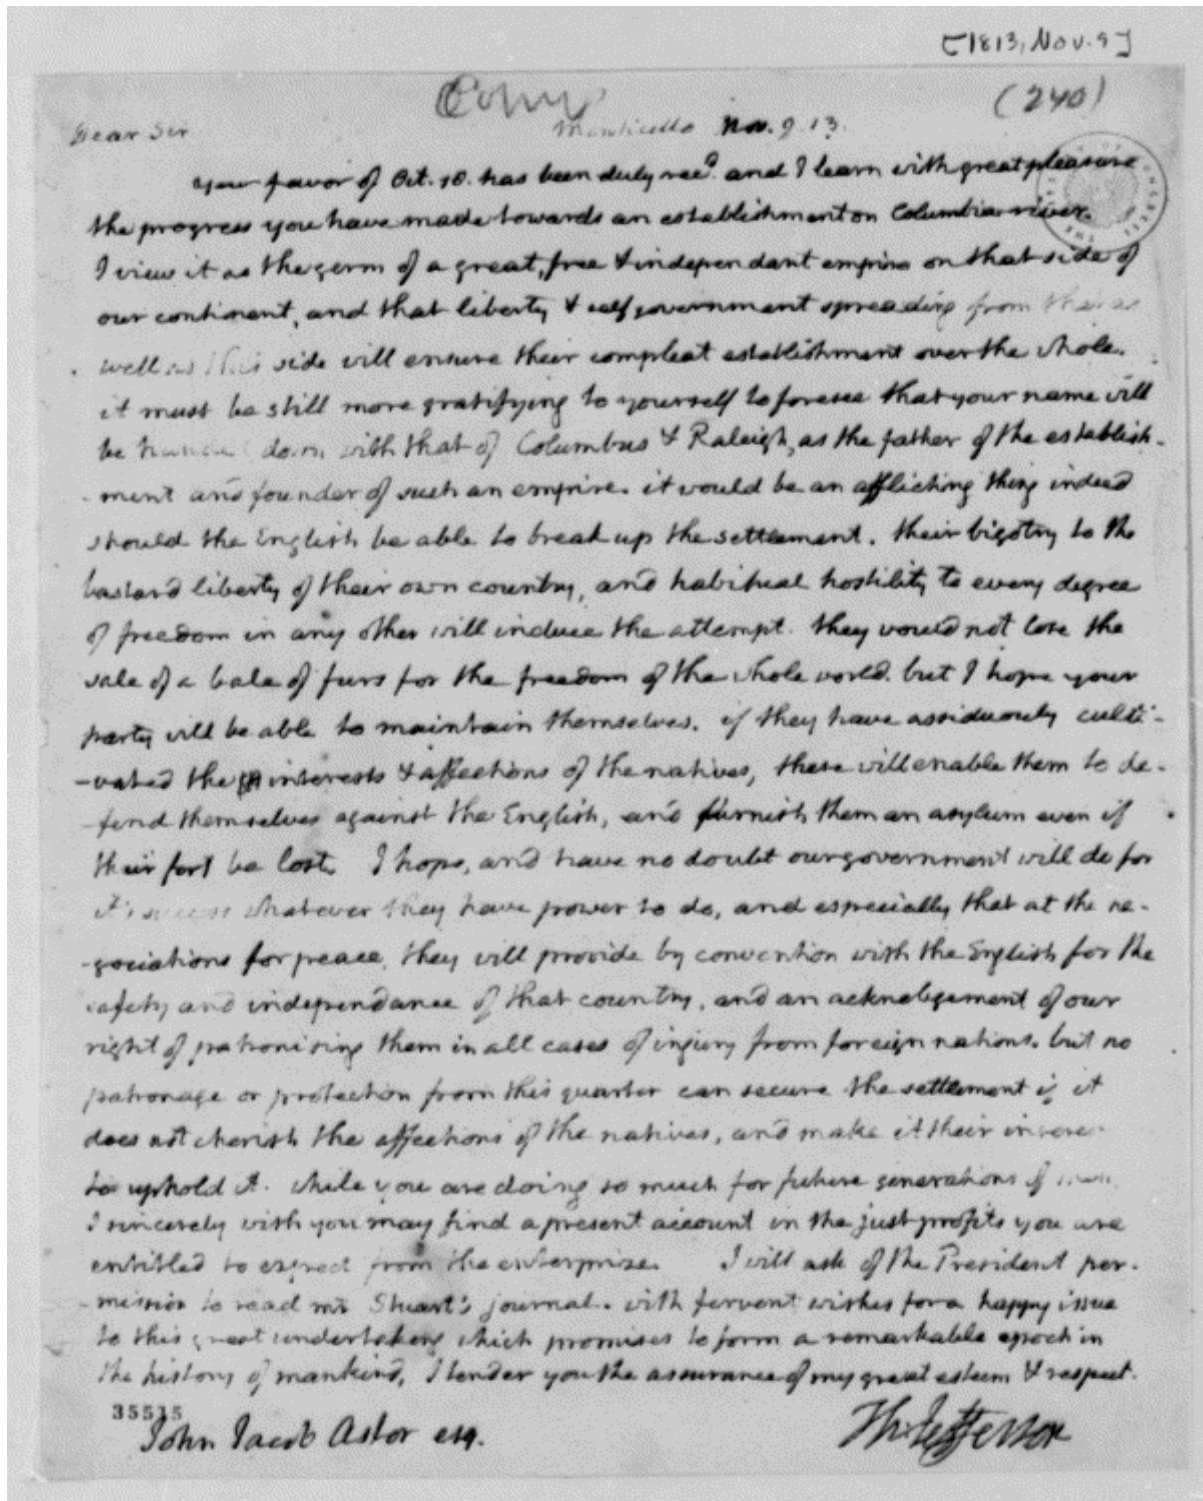 [1813, Nov. 9]
(240)
Dear Sir
Monticello Nov. 9. 13.
Your favor of Oct. 18. has been duly recd. and I learn with great pleasure
the progress you have made towards an establishment on Columbia river.
I view it as the germ of a great, free & independant empire on that side of
our continent, and that liberty & self government spreading from that as
well as this side will ensure their compleat establishment over the whole.
it must be still more gratifying to yourself to foresee that your name will
be handed down with that of Columbus & Raleigh, as the father of the establish-
-ment and founder of such an empire. it would be an afflicting thing indeed
should the English be able to break up the settlement. their bigotry to the
bastard liberty of their own country, and habitual hostility to every degree
of freedom in any other will induce the attempt. they would not lose the
sale of a bale of furs for the freedom of the whole world. but I hope your
party will be able to maintain themselves. if they have assiduously culti-
-vated the interests & affections of the natives, these will enable them to de-
-fend themselves against the English, and furnish them an asylum even if
their fort be lost. I hope, and have no doubt our government will do for
it's success whatever they have power to do, and especially that at the ne-
-gociations for peace, they will provide by convention with the English for the
safety and independance of that country, and an acknolegement of our
right of patronising them in all cases of injury from foreign nations. but no
patronage or protection from this quarter can secure the settlement if it
does not cherish the affections of the natives, and make it their interest
to uphold it. while you are doing so much for future generations of men
I sincerely wish you may find a present account in the just profits you are
entitled to expect from the enterprize. I will ask of the President per-
-mission to read mr Stuart's journal. with fervent wishes for a happy issue
to this great undertaking which promises to form a remarkable epoch in
the history of mankind, I tender you the assurance of my great esteem & respect.
35515
Th: Jefferson
John Jacob Astor esq.